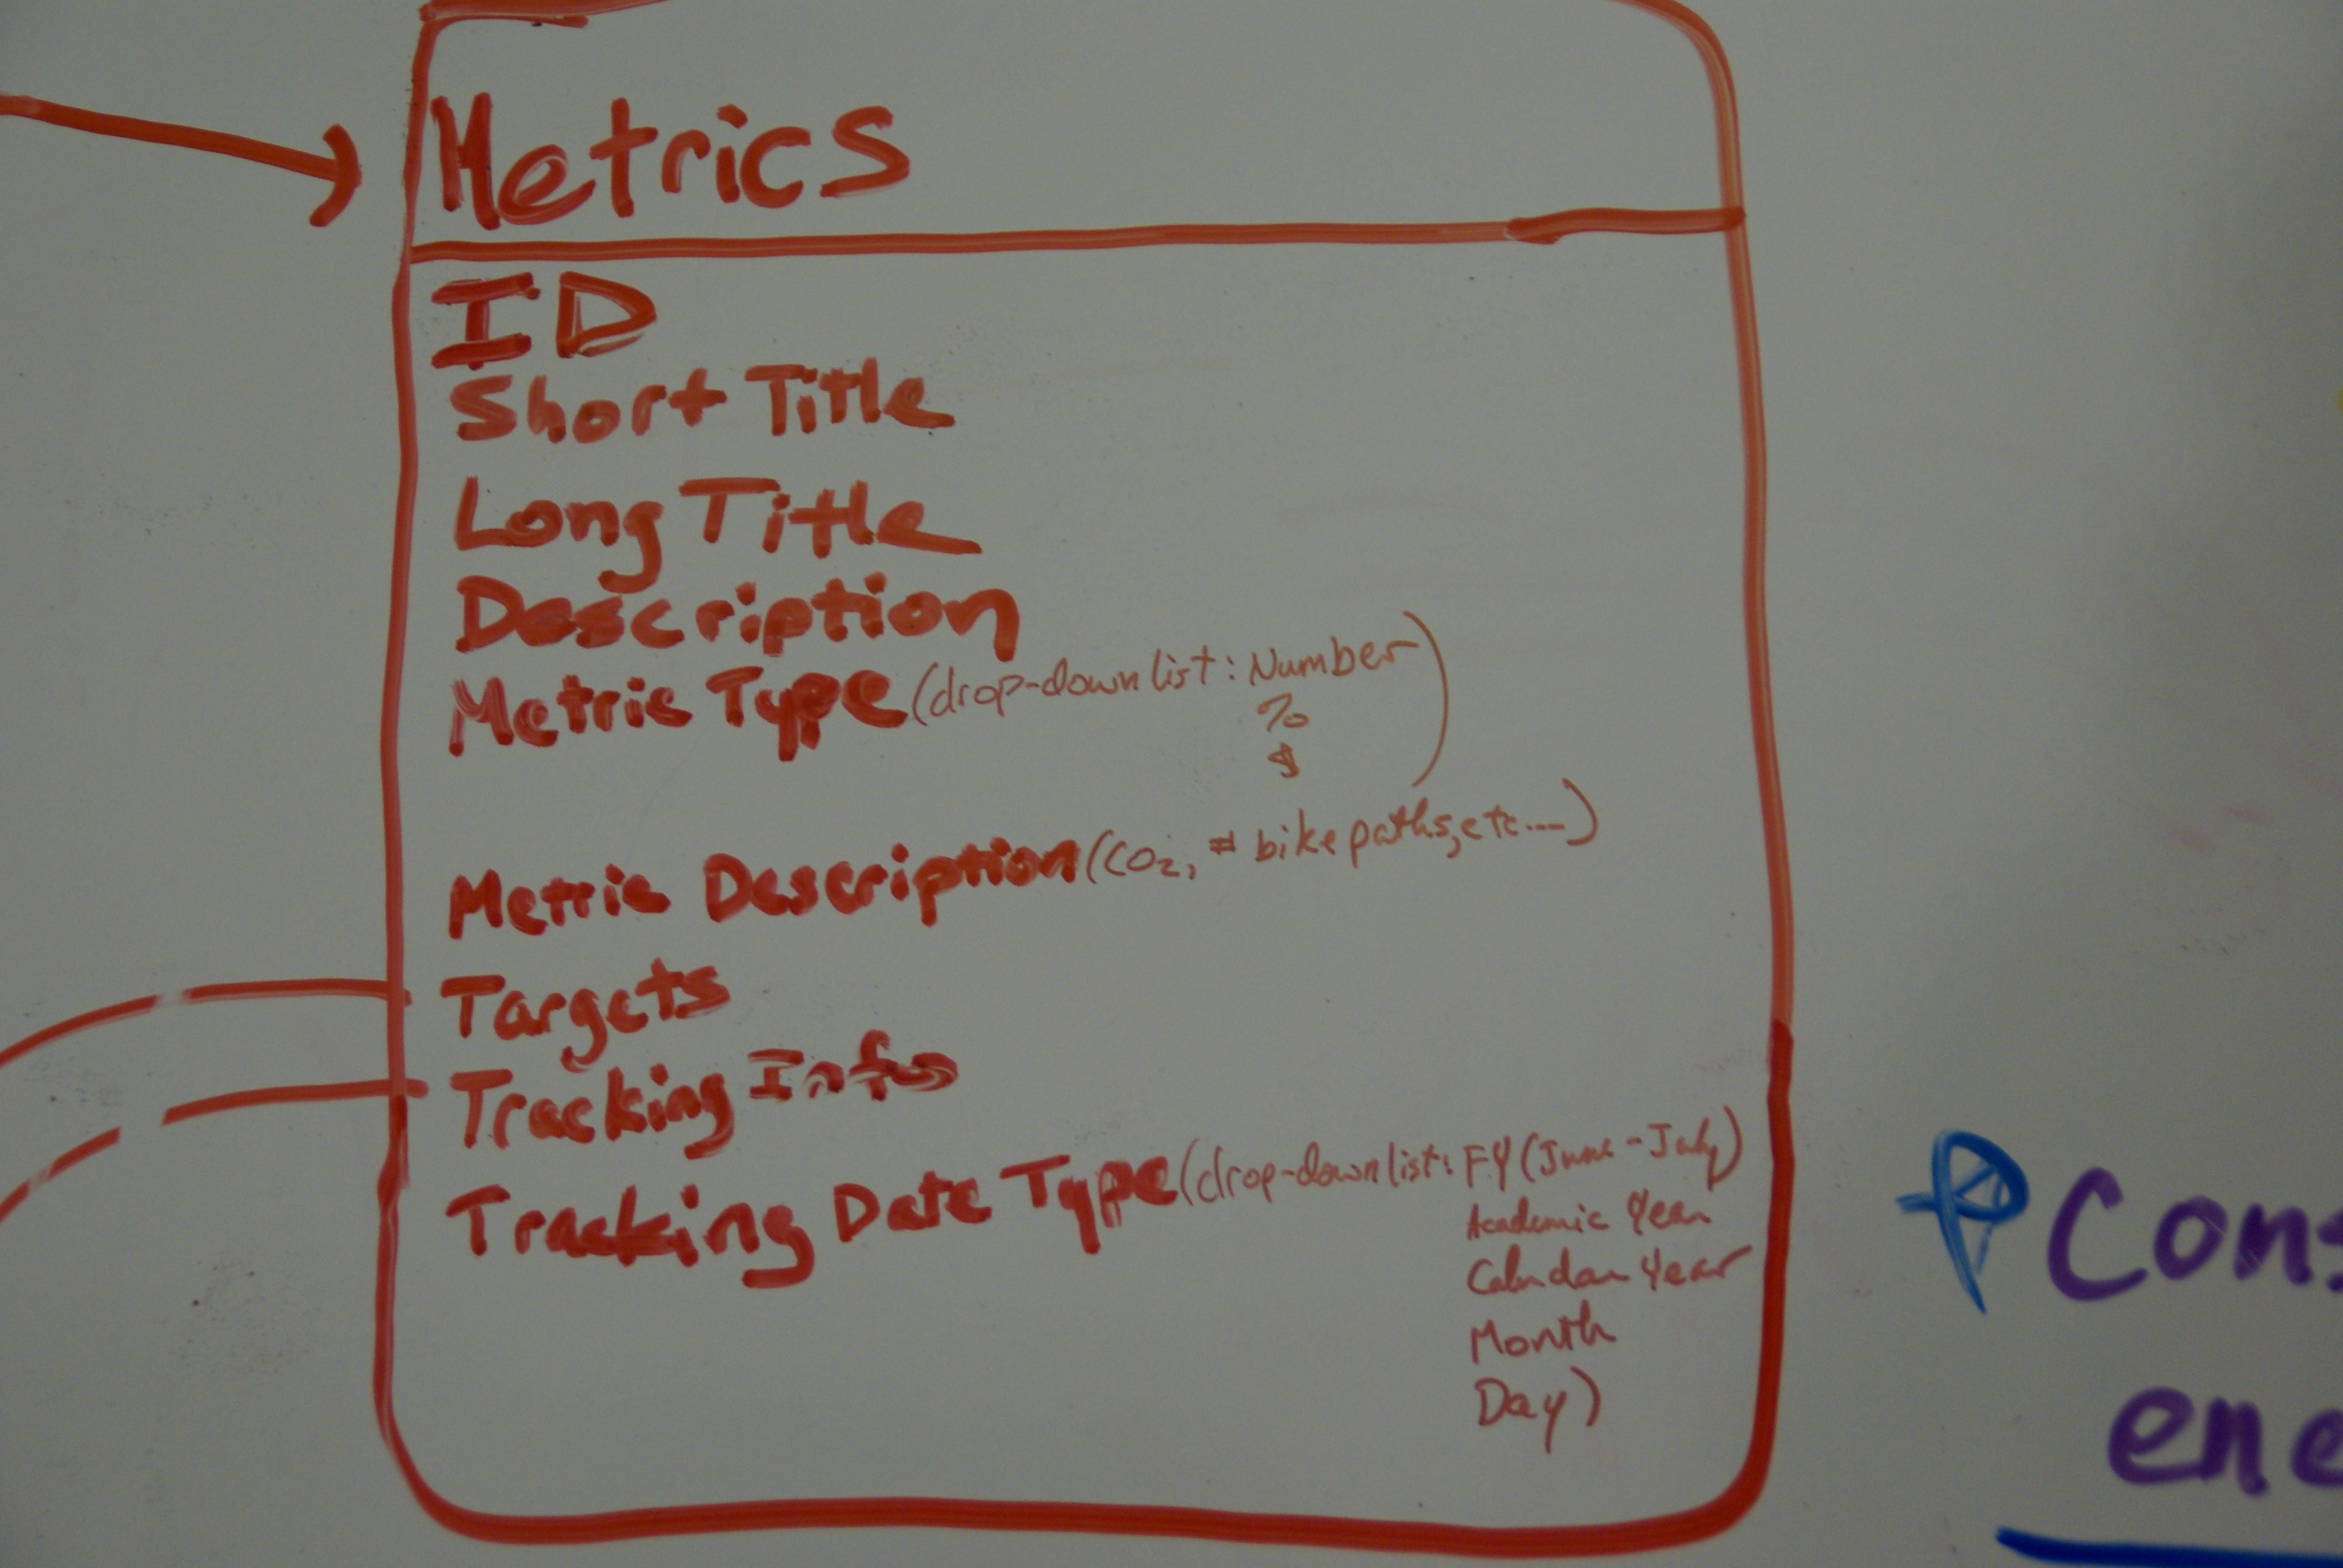 Metrics
ID
Short Title
Long Title
Description
Metric Type (drop-down list: Number
%
$)
Metric Description (CO2, # bike paths, etc....)
Targets
Tracking Info
Tracking Date Type (drop-down list: FY (June - July)
Academic Year
Calendar Year
Month
Day)
Cons
ene